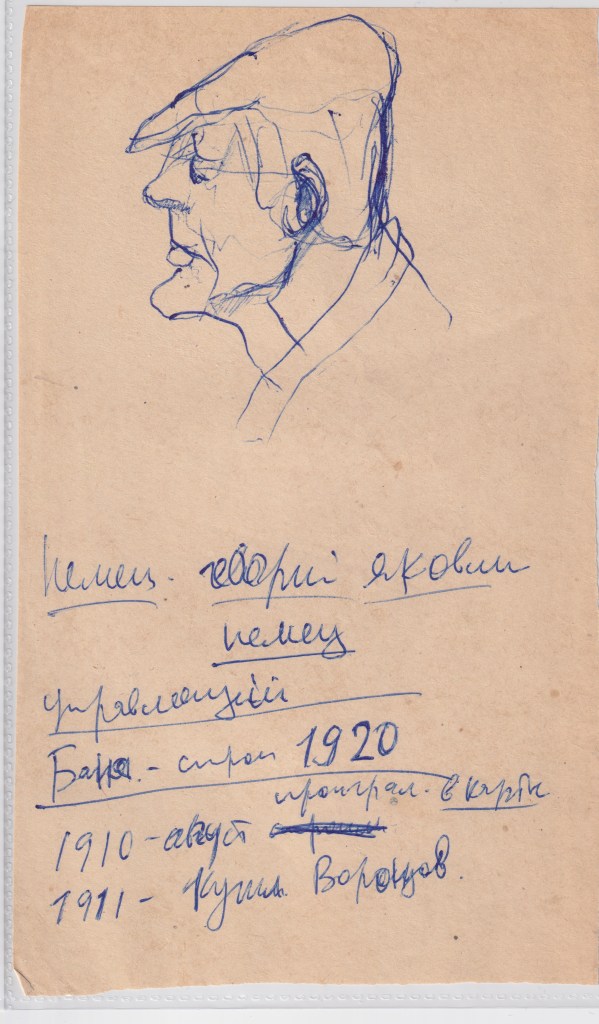 Немец. яковли
немец
управляющий
Баня. - строи 1920
проиграл. в карты
1910 - август
1911 - Купил. Воронцов.